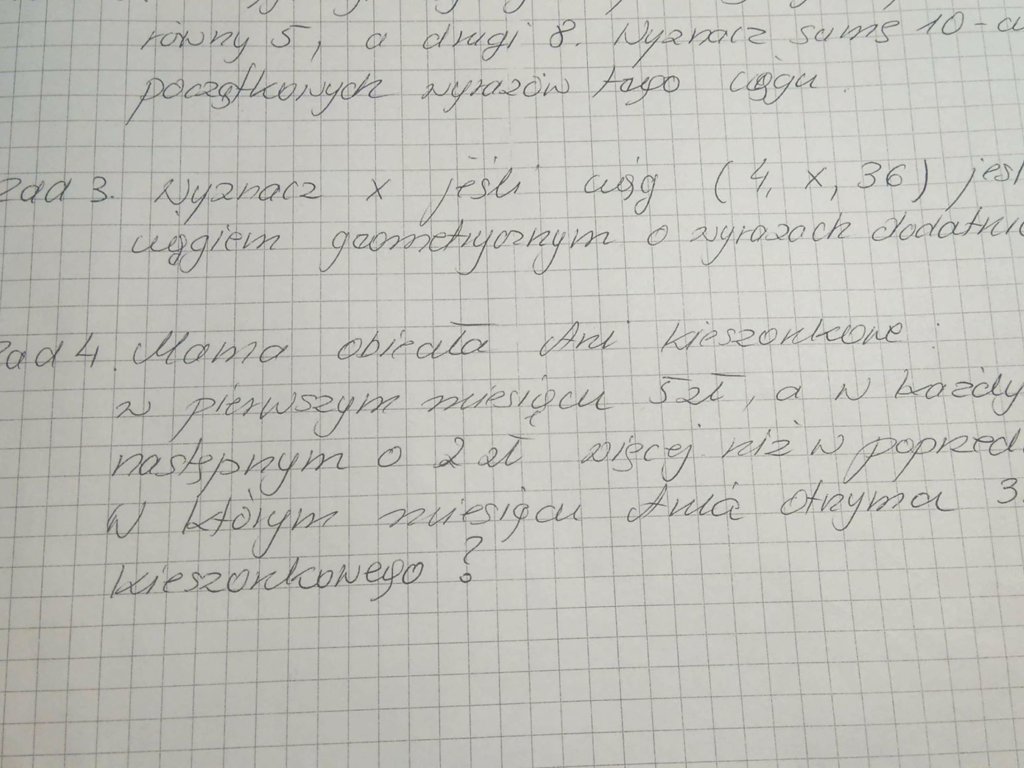 równy 5, a drugi 8. Wyznacz sumę 10-u
początkowych wyrazów tego ciągu.
Zad 3. Wyznacz x jeśli ciąg (4, x, 36) jest
ciągiem geometrycznym o wyrazach dodatnic
Zad 4. Mama obiecała Ani kieszonkowe :
w pierwszym miesiącu 5zł, a w każdy
następnym o 2 zł więcej niż w poprzed
W którym miesiącu Ania otrzyma 3
kieszonkowego ?